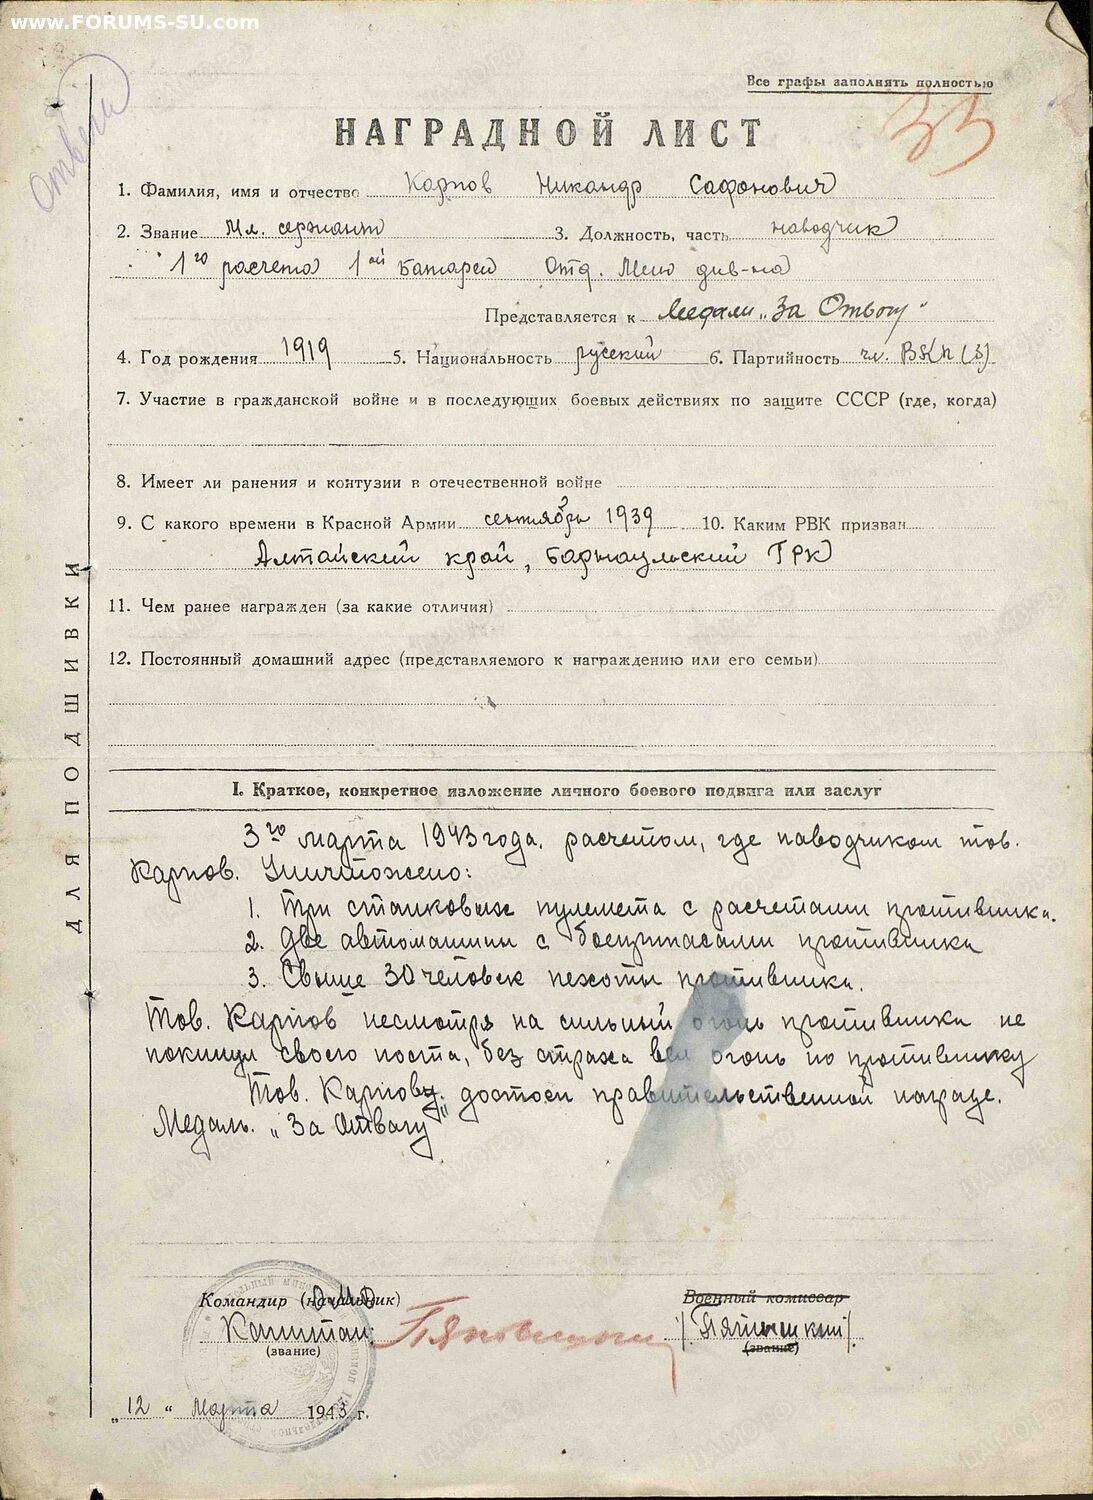 www.FORUMS-SU.com
Все графы заполнять полностью
33
НАГРАДНОЙ ЛИСТ
1. Фамилия, имя и отчество Карпов Никандр Сафонович
2. Звание Мл. сержант 3. Должность, часть наводчик
1го расчета 1ой батареи Отд. Мин. див-на
Представляется к Медали „За Отвагу"
4. Год рождения 1919 5. Национальность русский 6. Партийность чл. ВКП(б)
7. Участие в гражданской войне и в последующих боевых действиях по защите СССР (где, когда)
8. Имеет ли ранения и контузии в отечественной войне
9. С какого времени в Красной Армии сентябрь 1939 10. Каким РВК призван
Алтайский край, Барнаульский ГРК
11. Чем ранее награжден (за какие отличия)
12. Постоянный домашний адрес (представляемого к награждению или его семьи)
ДЛЯ ПОДШИВКИ
I. Краткое, конкретное изложение личного боевого подвига или заслуг
3го марта 1943 года. расчетом, где наводчиком тов.
Карпов. Уничтожено:
1. Три станковых пулемета с расчетами противника.
2. Две автомашины с боеприпасами противника
3. Свыше 30 человек пехоты противника.
Тов. Карпов несмотря на сильный огонь противника не
покинул своего поста, без страха вел огонь по противнику
Тов. Карпов достоен правительственной награде.
Медаль. „За Отвагу"
Командир (начальник) ОМД
Военный комиссар
Капитан
/Пятницкий/
(звание)
(звание)
„12" Марта 1943 г.